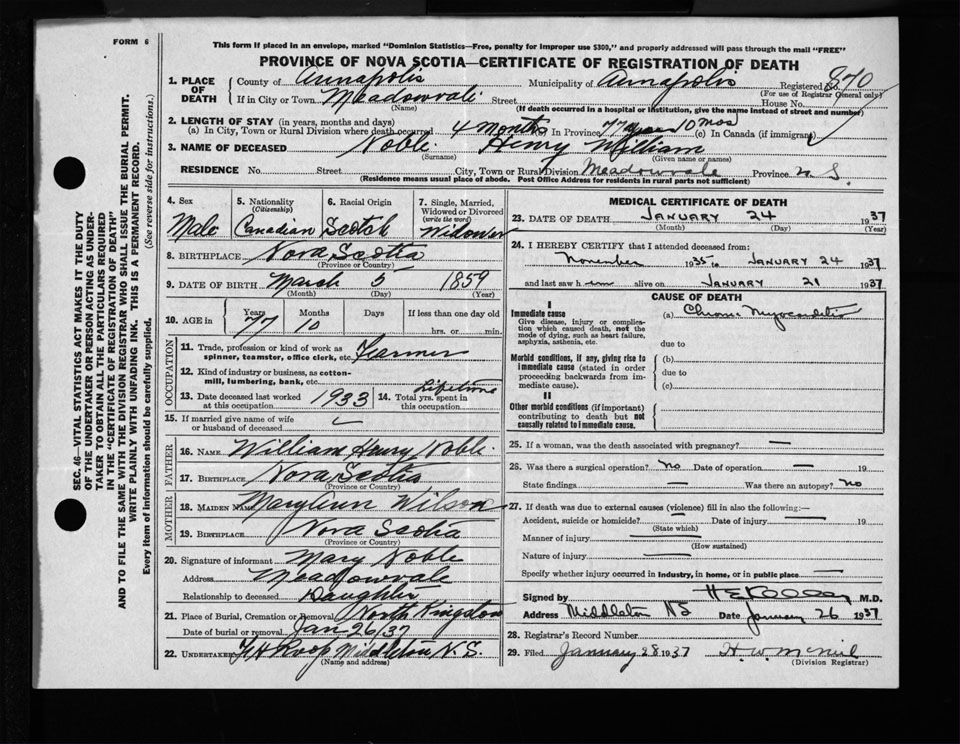 FORM 6
This form if placed in an envelope, marked "Dominion Statistics—Free, penalty for improper use $300," and properly addressed will pass through the mail "FREE"
PROVINCE OF NOVA SCOTIA—CERTIFICATE OF REGISTRATION OF DEATH
1. PLACE OF DEATH County of Annapolis Municipality of Annapolis Registered No. 870
(For use of Registrar General only)
If in City or Town Meadowvale Street House No.
(Name) (If death occurred in a hospital or institution, give the name instead of street and number)
2. LENGTH OF STAY (in years, months and days)
(a) In City, Town or Rural Division where death occurred 4 months (b) In Province 77 years 10 mos (c) In Canada (if immigrant)
3. NAME OF DECEASED Noble Henry William
(Surname) (Given name or names)
RESIDENCE No. Street City, Town or Rural Division Meadowvale Province N. S.
(Residence means usual place of abode. Post Office Address for residents in rural parts not sufficient)
4. Sex Male
5. Nationality (Citizenship) Canadian
6. Racial Origin Scotch
7. Single, Married, Widowed or Divorced (write the word) Widower
8. BIRTHPLACE Nova Scotia
(Province or Country)
9. DATE OF BIRTH March 5 1859
(Month) (Day) (Year)
10. AGE in Years Months Days If less than one day old
77 10 hrs. or min.
OCCUPATION
11. Trade, profession or kind of work as spinner, teamster, office clerk, etc. Farmer
12. Kind of industry or business, as cotton-mill, lumbering, bank, etc.
13. Date deceased last worked at this occupation 1933
14. Total yrs. spent in this occupation Lifetime
15. If married give name of wife or husband of deceased
FATHER
16. NAME William Henry Noble
17. BIRTHPLACE Nova Scotia
(Province or Country)
MOTHER
18. MAIDEN NAME Mary Ann Wilson
19. BIRTHPLACE Nova Scotia
(Province or Country)
20. Signature of informant Mary Noble
Address Meadowvale
Relationship to deceased Daughter
21. Place of Burial, Cremation or Removal North Kingston
Date of burial or removal Jan 26/37
22. UNDERTAKER F H Roop Middleton N. S.
(Name and address)
MEDICAL CERTIFICATE OF DEATH
23. DATE OF DEATH JANUARY 24 1937
(Month) (Day) (Year)
24. I HEREBY CERTIFY that I attended deceased from:
November 1935 to JANUARY 24 1937
and last saw him alive on JANUARY 21 1937
CAUSE OF DEATH
I
Immediate cause (a) Chronic Myocarditis
Give disease, injury or complication which caused death, not the mode of dying, such as heart failure, asphyxia, asthenia, etc.
due to
Morbid conditions, if any, giving rise to immediate cause (stated in order proceeding backwards from immediate cause). (b)
due to
(c)
II
Other morbid conditions (if important) contributing to death but not causally related to immediate cause.
25. If a woman, was the death associated with pregnancy? —
26. Was there a surgical operation? No Date of operation — 19
State findings — Was there an autopsy? No
27. If death was due to external causes (violence) fill in also the following:—
Accident, suicide or homicide? — Date of injury — 19
(State which)
Manner of injury —
(How sustained)
Nature of injury —
Specify whether injury occurred in industry, in home, or in public place —
Signed by M.D.
Address Middleton NS Date January 26 1937
28. Registrar's Record Number
29. Filed January 28 1937 H. W. McNeil
(Division Registrar)
SEC. 46—VITAL STATISTICS ACT MAKES IT THE DUTY
OF THE UNDERTAKER OR PERSON ACTING AS UNDER-
TAKER TO OBTAIN ALL THE PARTICULARS REQUIRED
IN THE "CERTIFICATE OF REGISTRATION OF DEATH"
AND TO FILE THE SAME WITH THE DIVISION REGISTRAR WHO SHALL ISSUE THE BURIAL PERMIT.
WRITE PLAINLY WITH UNFADING INK. THIS IS A PERMANENT RECORD.
Every item of information should be carefully supplied. (See reverse side for instructions.)